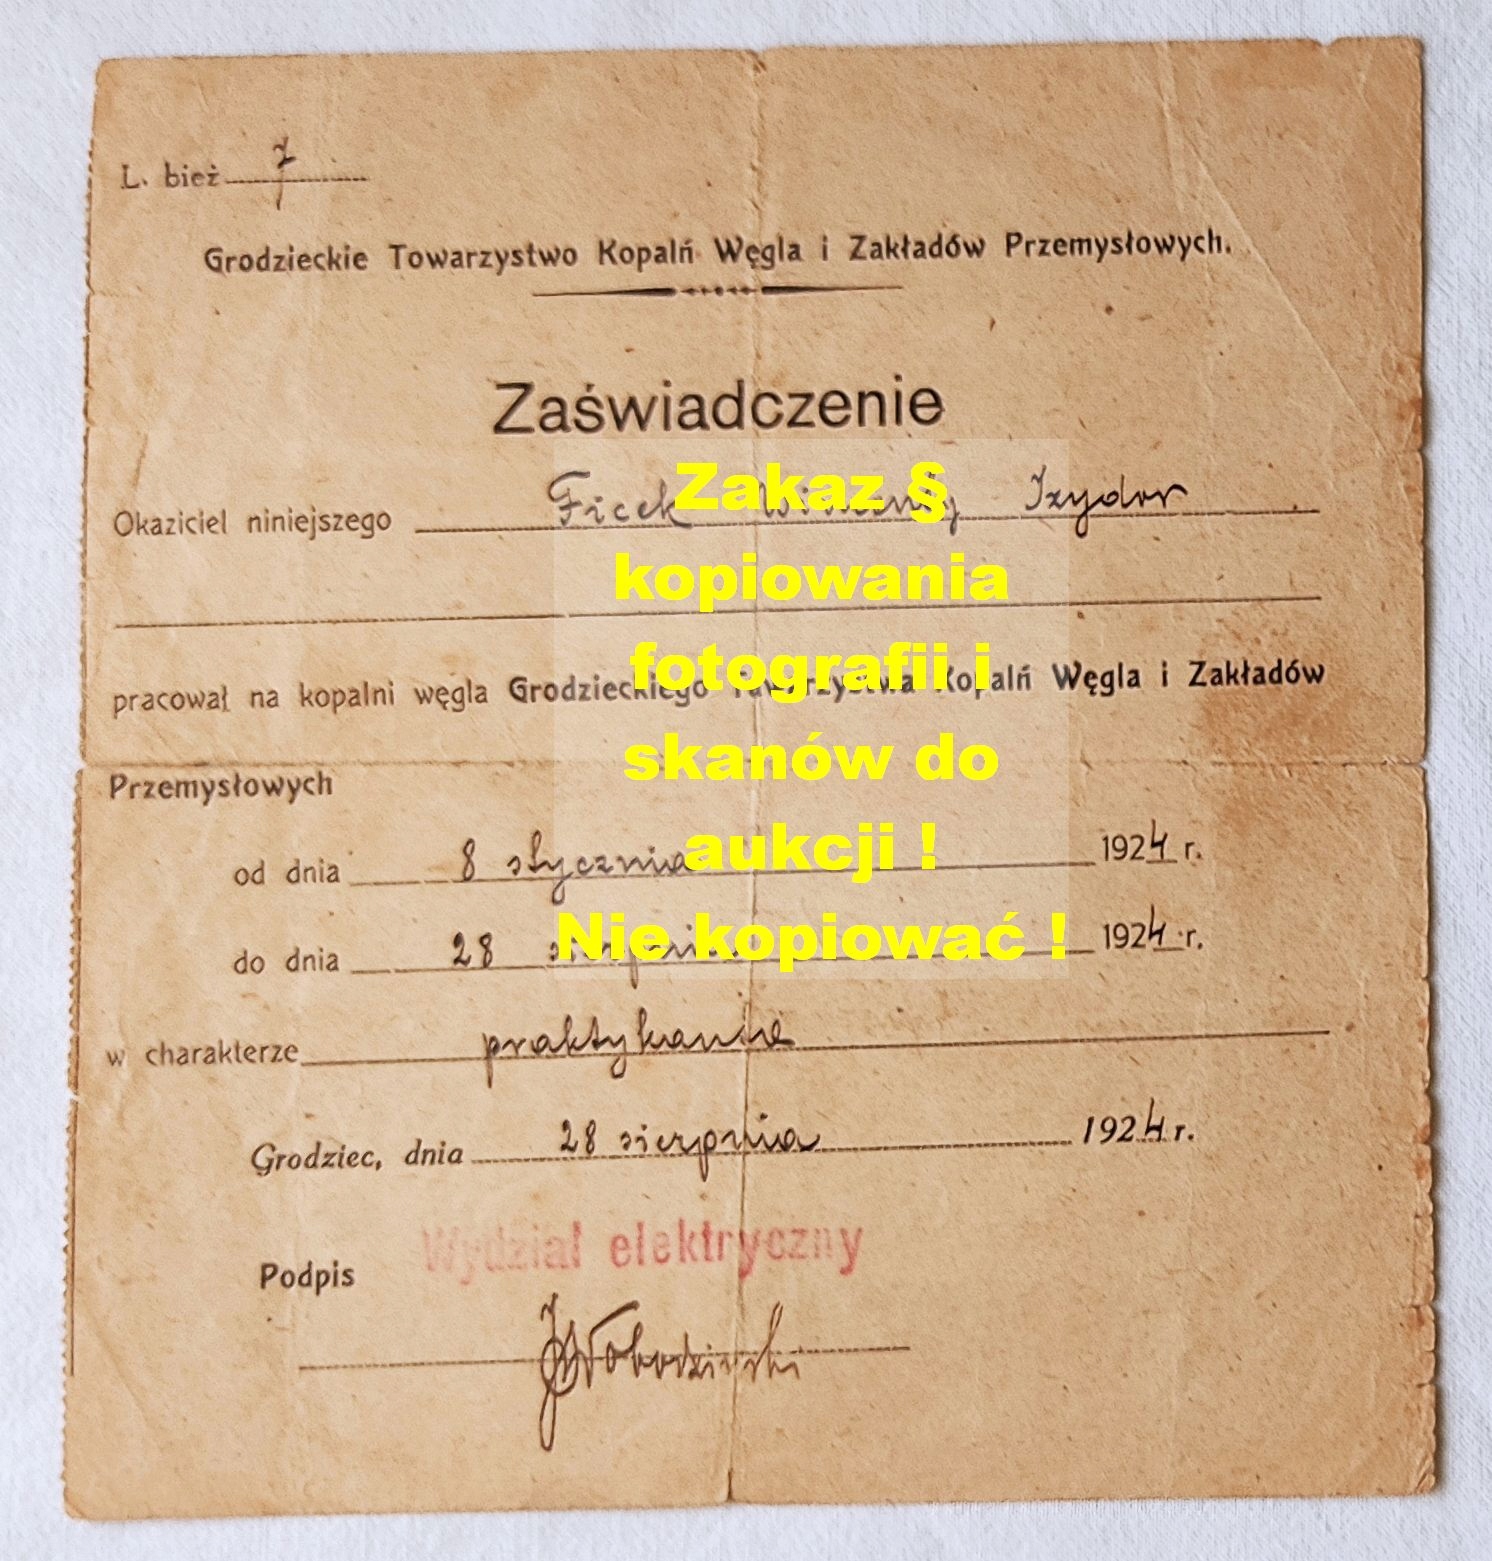 L. bież 7
Grodzieckie Towarzystwo Kopalń Węgla i Zakładów Przemysłowych.
Zaświadczenie
Okaziciel niniejszego Ficek Wincenty Izydor
pracował na kopalni węgla Grodzieckiego Towarzystwa Kopalń Węgla i Zakładów
Przemysłowych
od dnia 8 stycznia 1924 r.
do dnia 28 sierpnia 1924 r.
w charakterze praktykanta
Grodziec, dnia 28 sierpnia 1924 r.
Wydział elektryczny
Podpis
Zakaz §
kopiowania
fotografii i
skanów do
aukcji !
Nie kopiować !